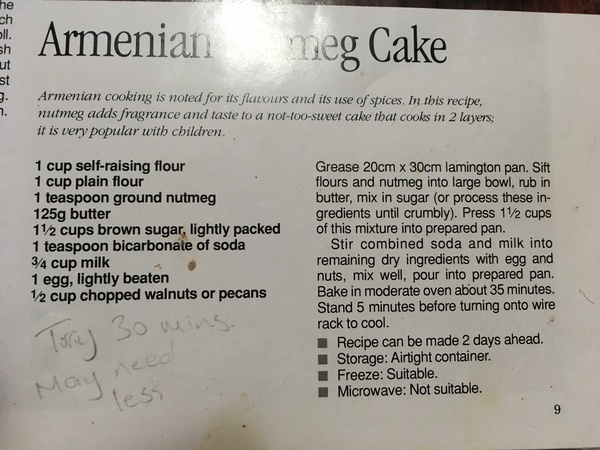 he
ch
oll.
sh
ut
st
g.
n.
Armenian meg Cake
Armenian cooking is noted for its flavours and its use of spices. In this recipe,
nutmeg adds fragrance and taste to a not-too-sweet cake that cooks in 2 layers;
it is very popular with children.
1 cup self-raising flour
1 cup plain flour
1 teaspoon ground nutmeg
125g butter
1½ cups brown sugar, lightly packed
1 teaspoon bicarbonate of soda
¾ cup milk
1 egg, lightly beaten
½ cup chopped walnuts or pecans
30 mins.
May need
less
Grease 20cm x 30cm lamington pan. Sift
flours and nutmeg into large bowl, rub in
butter, mix in sugar (or process these in-
gredients until crumbly). Press 1½ cups
of this mixture into prepared pan.
Stir combined soda and milk into
remaining dry ingredients with egg and
nuts, mix well, pour into prepared pan.
Bake in moderate oven about 35 minutes.
Stand 5 minutes before turning onto wire
rack to cool.
■ Recipe can be made 2 days ahead.
■ Storage: Airtight container.
■ Freeze: Suitable.
■ Microwave: Not suitable.
9